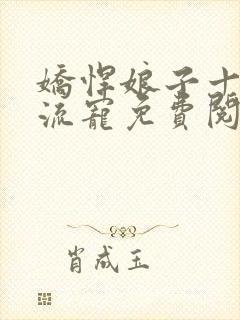 嬌悍娘子十
流寵免費閱
肖成玉